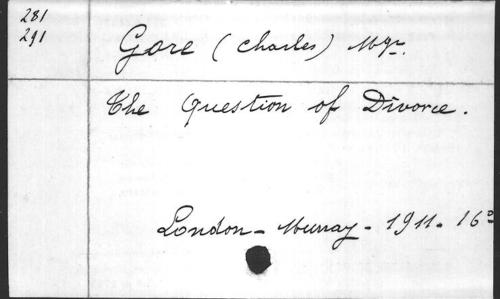 281
291
Gore (Charles) Mgr.
The Question of Divorce.
London - Murray - 1911. 16º